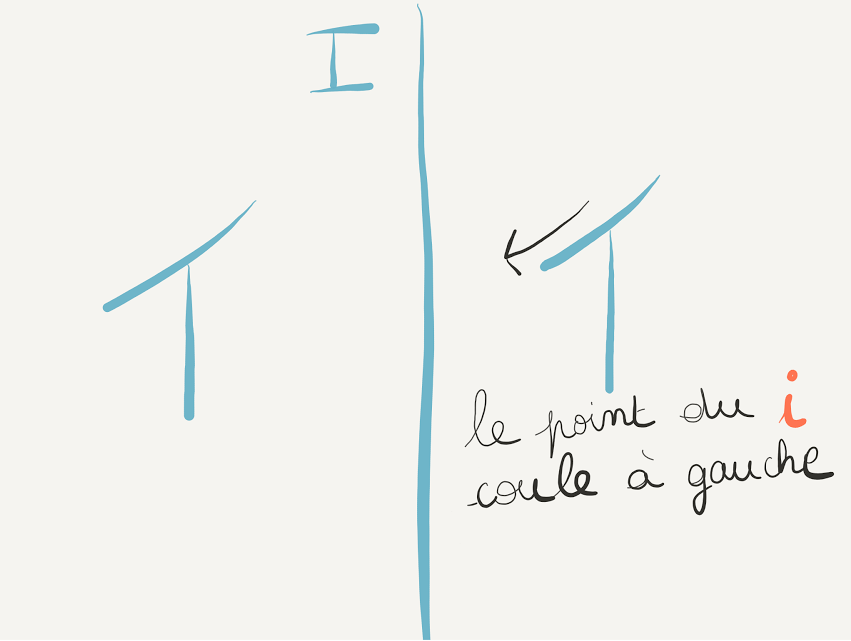 I
イ
イ
le point du i
coule à gauche